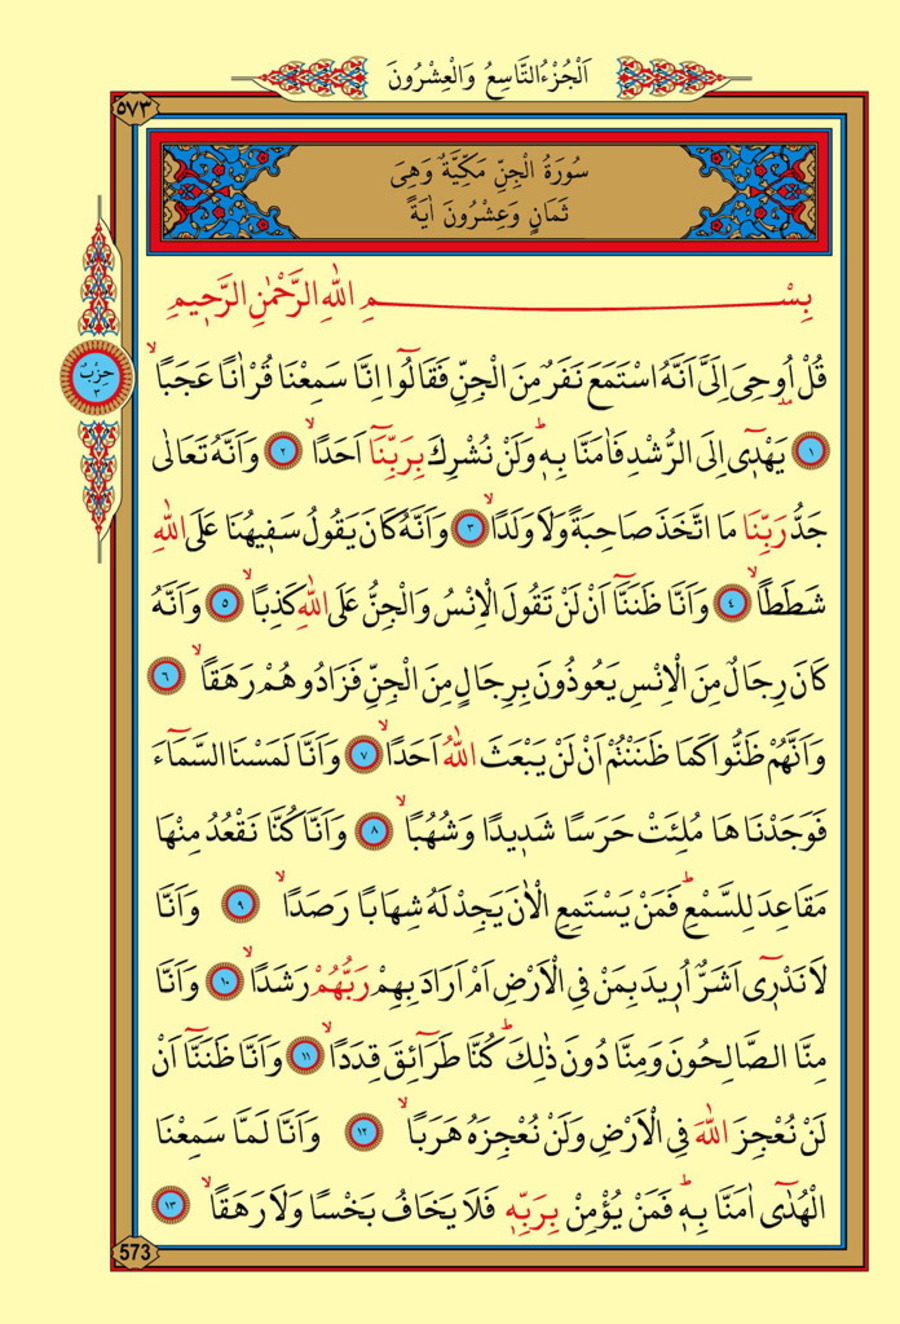 اَلْجُزْءُ التَّاسِعُ وَالْعِشْرُونَ
٥٧٣
سُورَةُ الْجِنِّ مَكِّيَّةٌ وَهِىَ
ثَمَانٍ وَعِشْرُونَ اٰيَةً
بِسْمِ اللّٰهِ الرَّحْمٰنِ الرَّحٖيمِ
حِزْبٌ
٣
قُلْ اُوحِىَ اِلَىَّ اَنَّهُ اسْتَمَعَ نَفَرٌ مِنَ الْجِنِّ فَقَالُٓوا اِنَّا سَمِعْنَا قُرْاٰنًا عَجَبًاۙ
﴿١﴾ يَهْدٖٓى اِلَى الرُّشْدِ فَاٰمَنَّا بِهٖؕ وَلَنْ نُشْرِكَ بِرَبِّنَٓا اَحَدًاۙ ﴿٢﴾ وَاَنَّهُ تَعَالٰى
جَدُّ رَبِّنَا مَا اتَّخَذَ صَاحِبَةً وَلَا وَلَدًاۙ ﴿٣﴾ وَاَنَّهُ كَانَ يَقُولُ سَفٖيهُنَا عَلَى اللّٰهِ
شَطَطًاۙ ﴿٤﴾ وَاَنَّا ظَنَنَّٓا اَنْ لَنْ تَقُولَ الْاِنْسُ وَالْجِنُّ عَلَى اللّٰهِ كَذِبًاۙ ﴿٥﴾ وَاَنَّهُ
كَانَ رِجَالٌ مِنَ الْاِنْسِ يَعُوذُونَ بِرِجَالٍ مِنَ الْجِنِّ فَزَادُوهُمْ رَهَقًاۙ ﴿٦﴾
وَاَنَّهُمْ ظَنُّوا كَمَا ظَنَنْتُمْ اَنْ لَنْ يَبْعَثَ اللّٰهُ اَحَدًاۙ ﴿٧﴾ وَاَنَّا لَمَسْنَا السَّمَٓاءَ
فَوَجَدْنَاهَا مُلِئَتْ حَرَسًا شَدٖيدًا وَشُهُبًاۙ ﴿٨﴾ وَاَنَّا كُنَّا نَقْعُدُ مِنْهَا
مَقَاعِدَ لِلسَّمْعِؕ فَمَنْ يَسْتَمِعِ الْاٰنَ يَجِدْ لَهُ شِهَابًا رَصَدًاۙ ﴿٩﴾ وَاَنَّا
لَا نَدْرٖٓى اَشَرٌّ اُرٖيدَ بِمَنْ فِى الْاَرْضِ اَمْ اَرَادَ بِهِمْ رَبُّهُمْ رَشَدًاۙ ﴿١٠﴾ وَاَنَّا
مِنَّا الصَّالِحُونَ وَمِنَّا دُونَ ذٰلِكَؕ كُنَّا طَرَٓائِقَ قِدَدًاۙ ﴿١١﴾ وَاَنَّا ظَنَنَّٓا اَنْ
لَنْ نُعْجِزَ اللّٰهَ فِى الْاَرْضِ وَلَنْ نُعْجِزَهُ هَرَبًاۙ ﴿١٢﴾ وَاَنَّا لَمَّا سَمِعْنَا
الْهُدٰٓى اٰمَنَّا بِهٖؕ فَمَنْ يُؤْمِنْ بِرَبِّهٖ فَلَا يَخَافُ بَخْسًا وَلَا رَهَقًاۙ ﴿١٣﴾
573